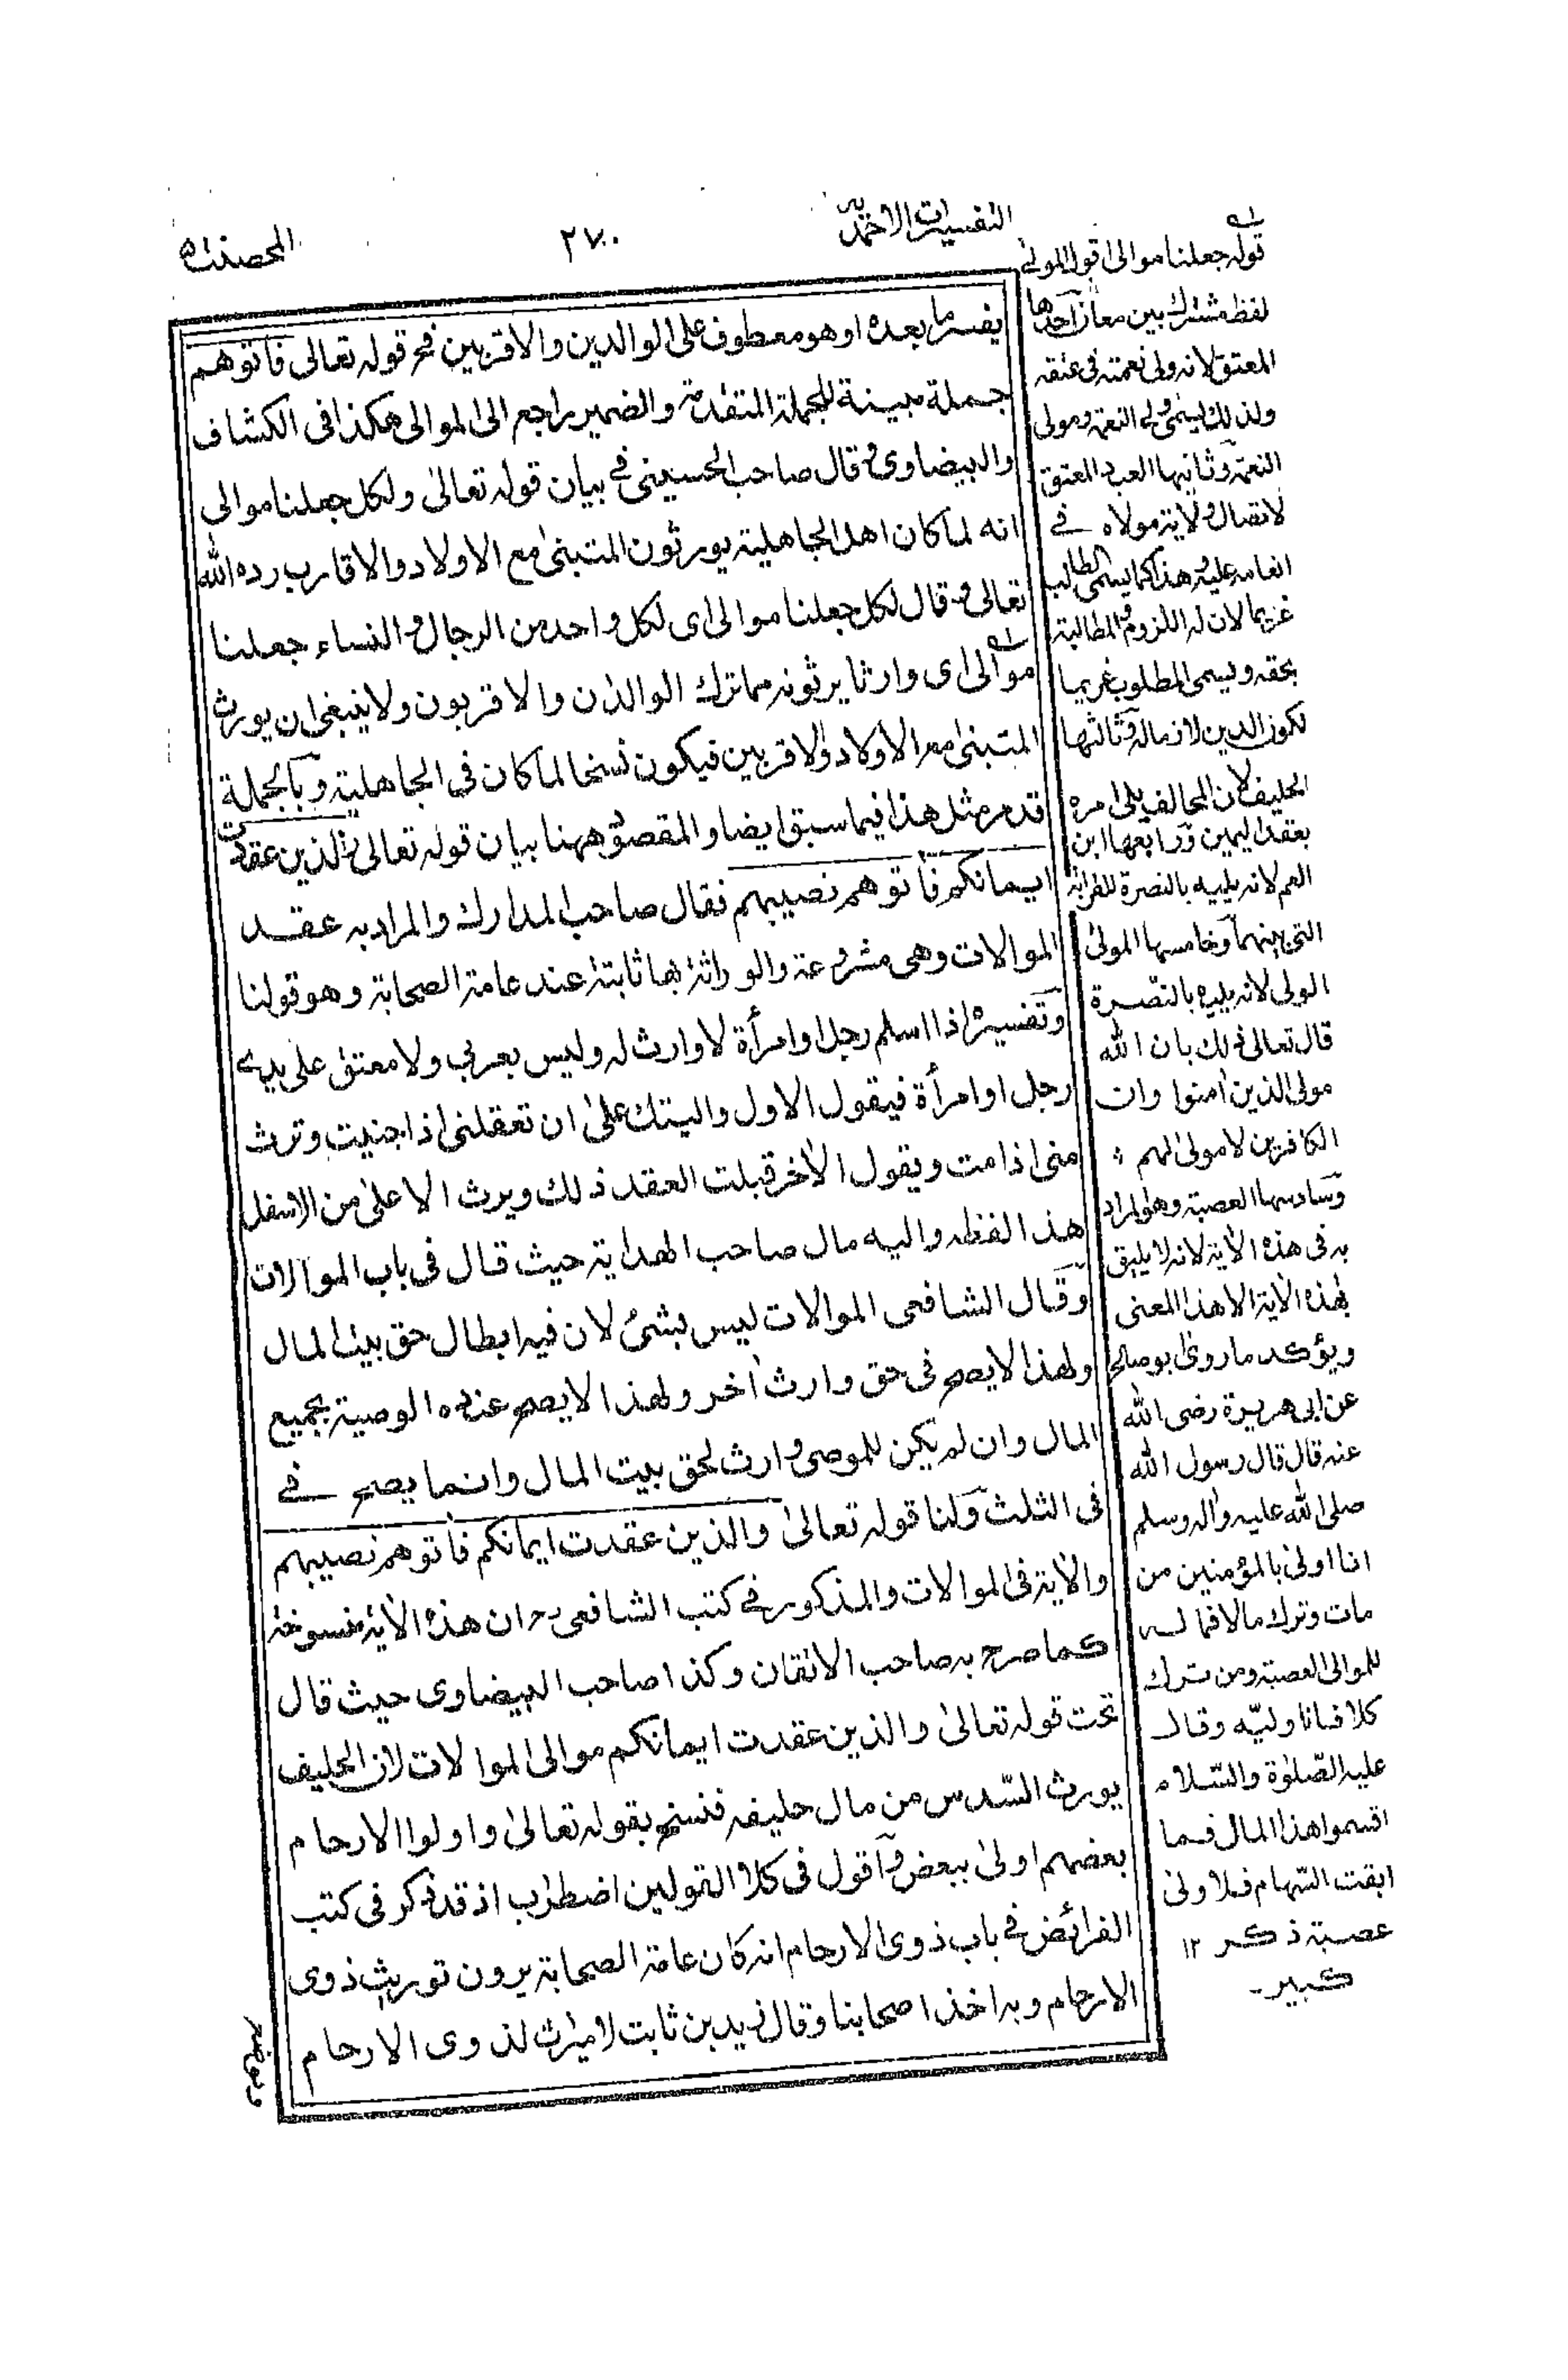 التفسيرات الاحمدية
٢٧٠
المحصنت ٥
يفسره ما بعده او هو معطوف على الوالدين والاقربين فح قوله تعالى فاتوهم
جملة مبينة للجملة المتقدمة والضمير راجع الى الموالى هكذا فى الكشاف
والبيضاوى وقال صاحب الحسينى فى بيان قوله تعالىٰ ولكل جعلنا موالى
انه لما كان اهل الجاهلية يورثون المتبنىٰ مع الاولاد والاقارب رده الله
تعالى وقال لكل جعلنا موالى اى لكل واحد من الرجال والنساء جعلنا
موالى اى وارثا يرثونه مما ترك الوالدن والاقربون ولا ينبغى ان يورث
المتبنىٰ مع الاولاد والاقربين فيكون نسخا لما كان فى الجاهلية وبالجملة
قد مر مثل هذا فيما سبق ايضا والمقصود ههنا بيان قوله تعالىٰ والذين عقدت
ايمانكم فاتوهم نصيبهم فقال صاحب المدارك والمراد به عقد
الموالات وهى مشروعة والوراثة بها ثابتة عند عامة الصحابة وهو قولنا
وتفسيره اذا اسلم رجل او امرأة لا وارث له وليس بعربى ولا معتق على يديه
رجل او امرأة فيقول الاول واليتك علىٰ ان تعقلنى اذا جنيت وترث
منى اذا مت ويقول الاٰخر قبلت العقد ذلك ويرث الاعلىٰ من الاسفل
هذا لفظه واليه مال صاحب الهداية حيث قال فى باب الموالات
وقال الشافعى الموالات ليس بشئ لان فيه ابطال حق بيت المال
ولهذا لا يصح فى حق وارث اٰخر ولهذا لا يصح عنده الوصية بجميع
المال وان لم يكن للموصى وارث لحق بيت المال وانما يصح فى
فى الثلث ولنا قوله تعالىٰ والذين عقدت ايمانكم فاتوهم نصيبهم
والاٰية فى الموالات والمذكور فى كتب الشافعى رح ان هذه الاٰية منسوخة
كما صرح به صاحب الاتقان وكذا صاحب البيضاوى حيث قال
تحت قوله تعالىٰ والذين عقدت ايمانكم موالى الموالات لان الحليف
يورث السّدس من مال حليفه فنسخ بقوله تعالىٰ واولوا الارحام
بعضهم اولىٰ ببعض واقول فى كلا القولين اضطراب اذ قد ذكر فى كتب
الفرائض فى باب ذوى الارحام انه كان عامة الصحابة يرون توريث ذوى
الارحام وبه اخذ اصحابنا وقال زيد بن ثابت لا ميراث لذوى الارحام
قوله جعلنا موالى اقول المولى
لفظ مشترك بين معان احدها
المعتق لانه ولى نعمته فى عتقه
ولذلك يسمى ولى النعمة ومولى
النعمة وثانيها العبد المعتق
لاتصال ولاية مولاه فى
انعامه عليه وهذا كما يسمى الطالب
غريما لان له اللزوم والمطالبة
بحقه ويسمى المطلوب غريما
لكون الدين لازما له وثالثها
الحليف لان المحالف يلى امره
بعقد اليمين ورابعها ابن
العم لانه يليه بالنصرة للقرابة
التى بينهما وخامسها المولىٰ
الولى لانه يليه بالنصرة
قال تعالى ذلك بان الله
مولى الذين اٰمنوا وان
الكافرين لا مولىٰ لهم
وسادسها العصبة وهو المراد
به فى هذه الاٰية لانه لا يليق
بهذه الاٰية الا هذا المعنى
ويؤكد ما روىٰ ابو صالح
عن ابى هريرة رضى الله
عنه قال قال رسول الله
صلى الله عليه واٰله وسلم
انا اولىٰ بالمؤمنين من
مات وترك مالا فماله
للموالى العصبة ومن ترك
كلا فانا وليّه وقال
عليه الصّلوٰة والسّلام
اقسموا هذا المال فما
ابقت السّهام فلاولىٰ
عصبة ذكر ١٢
كبير